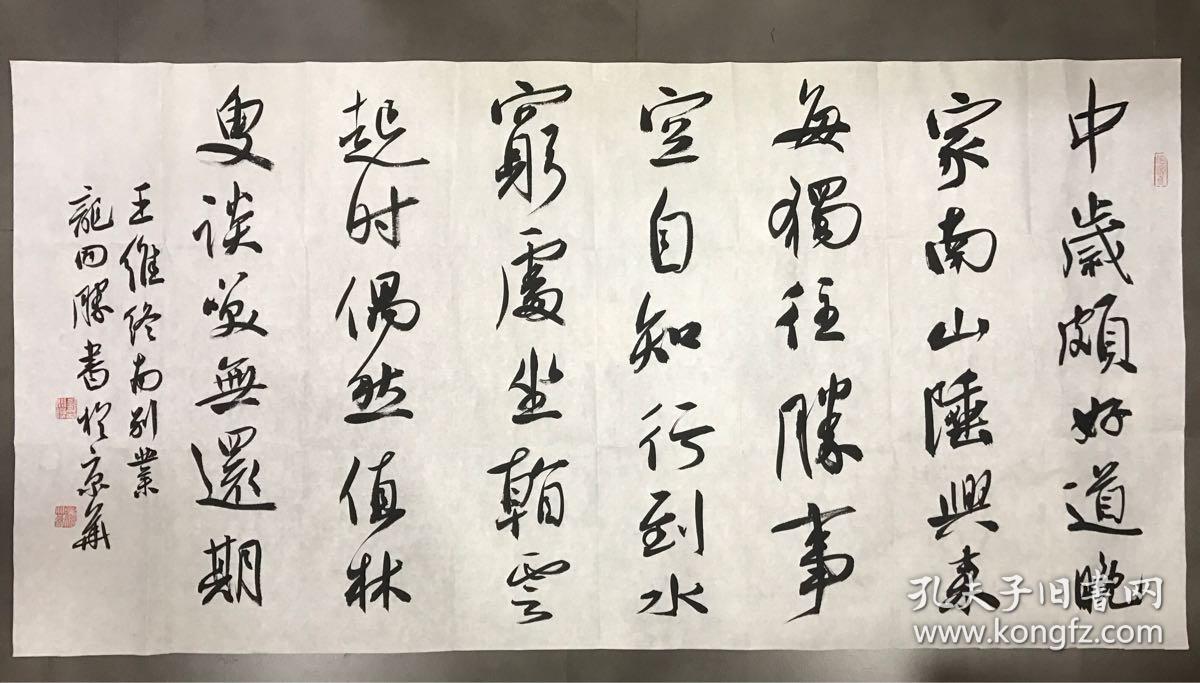 中歲頗好道晚
家南山陲興来
每獨往勝事
空自知行到水
窮處坐看雲
起时偶然值林
叟談咲無還期
王維終南别業
龍勝書於京華
孔夫子旧书网
www.kongfz.com